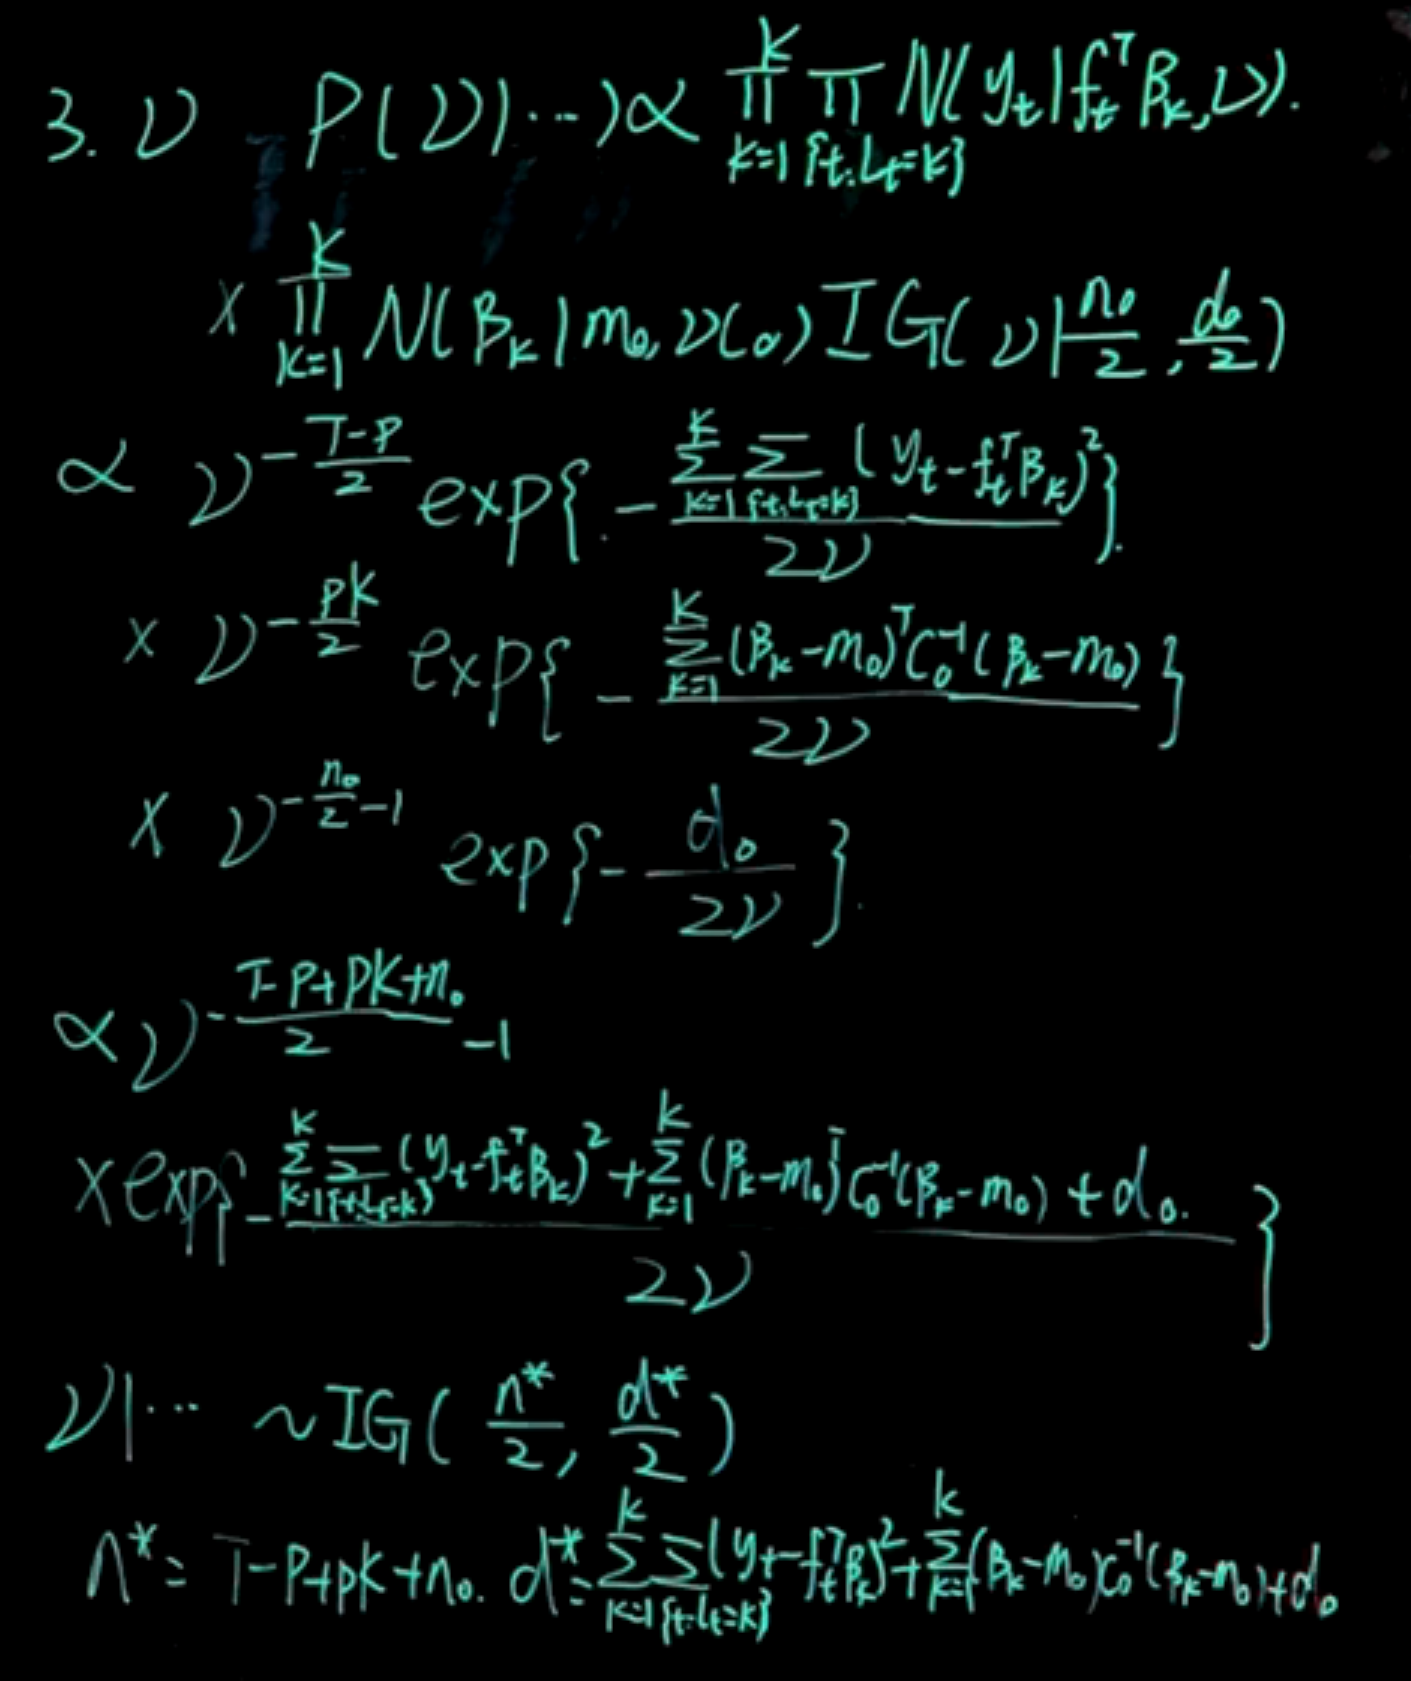 3. ν P(ν|···) ∝ ∏_{k=1}^{K} ∏_{{t:L_t=k}} N(y_t|f_t^T β_k, ν).
× ∏_{k=1}^{K} N(β_k|m_0, νC_0) IG(ν|n_0/2, d_0/2)
∝ ν^{-(T-P)/2} exp{-(∑_{k=1}^{K} ∑_{{t:L_t=k}} (y_t-f_t^T β_k)^2)/(2ν)}.
× ν^{-pK/2} exp{-(∑_{k=1}^{K} (β_k-m_0)^T C_0^{-1}(β_k-m_0))/(2ν)}
× ν^{-n_0/2-1} exp{-d_0/(2ν)}.
∝ ν^{-(T-P+PK+n_0)/2-1}
× exp{-(∑_{k=1}^{K} ∑_{{t:L_t=k}} (y_t-f_t^T β_k)^2+∑_{k=1}^{K} (β_k-m_0)^T C_0^{-1}(β_k-m_0)+d_0.)/(2ν)}
ν|··· ~ IG(n*/2, d*/2)
n* = T-P+pK+n_0. d* = ∑_{k=1}^{K} ∑_{{t:L_t=k}} (y_t-f_t^T β_k)^2+∑_{k=1}^{K} (β_k-m_0)C_0^{-1}(β_k-m_0)+d_0